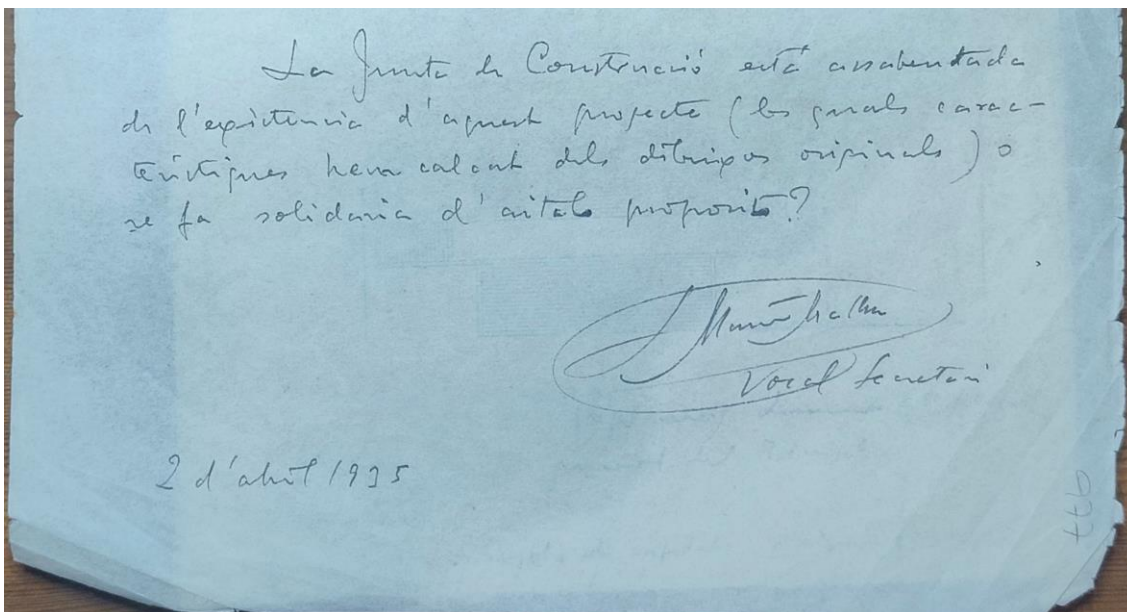 La Junta de Construcció està assabentada
de l'existencia d'aquest projecte (les quals carac-
terístiques hem calcat dels dibuixos originals) o
se fa solidaria d'aitals proposits?
Vocal Secretari
2 d'abril 1935
977